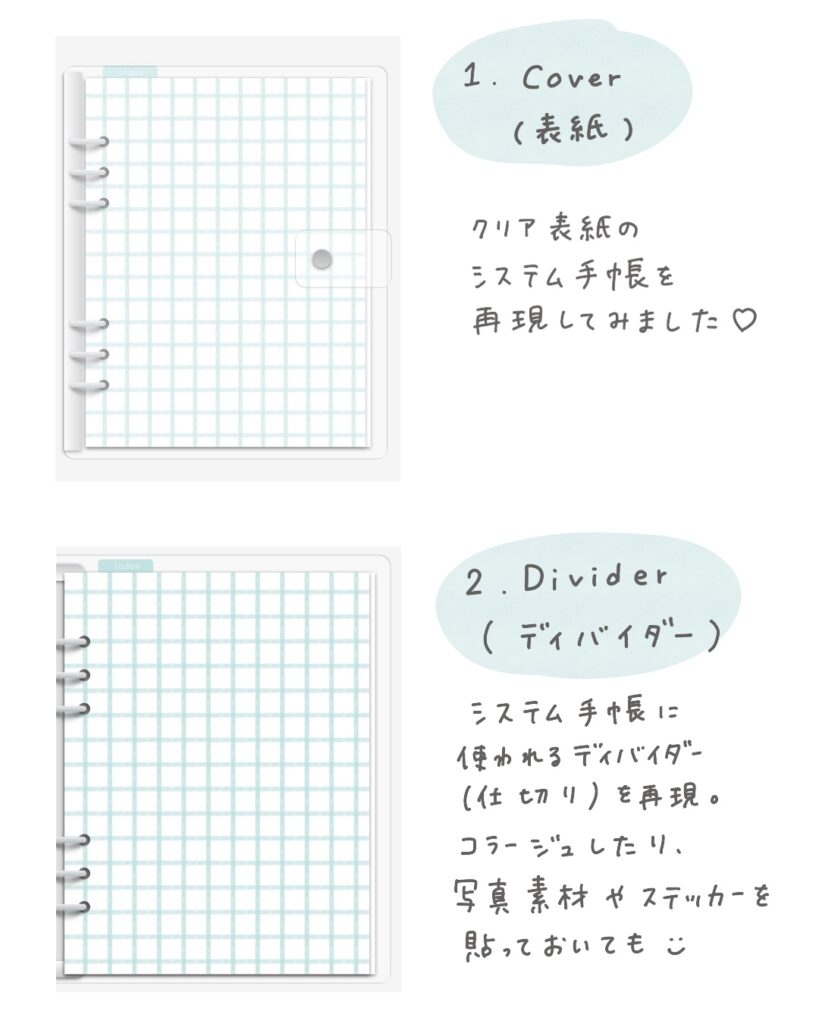 Index
1. Cover
(表紙)
クリア表紙の
システム手帳を
再現してみました♡
Index
2. Divider
(ディバイダー)
システム手帳に
使われるディバイダー
(仕切り)を再現。
コラージュしたり、
写真素材やステッカーを
貼っておいても☺